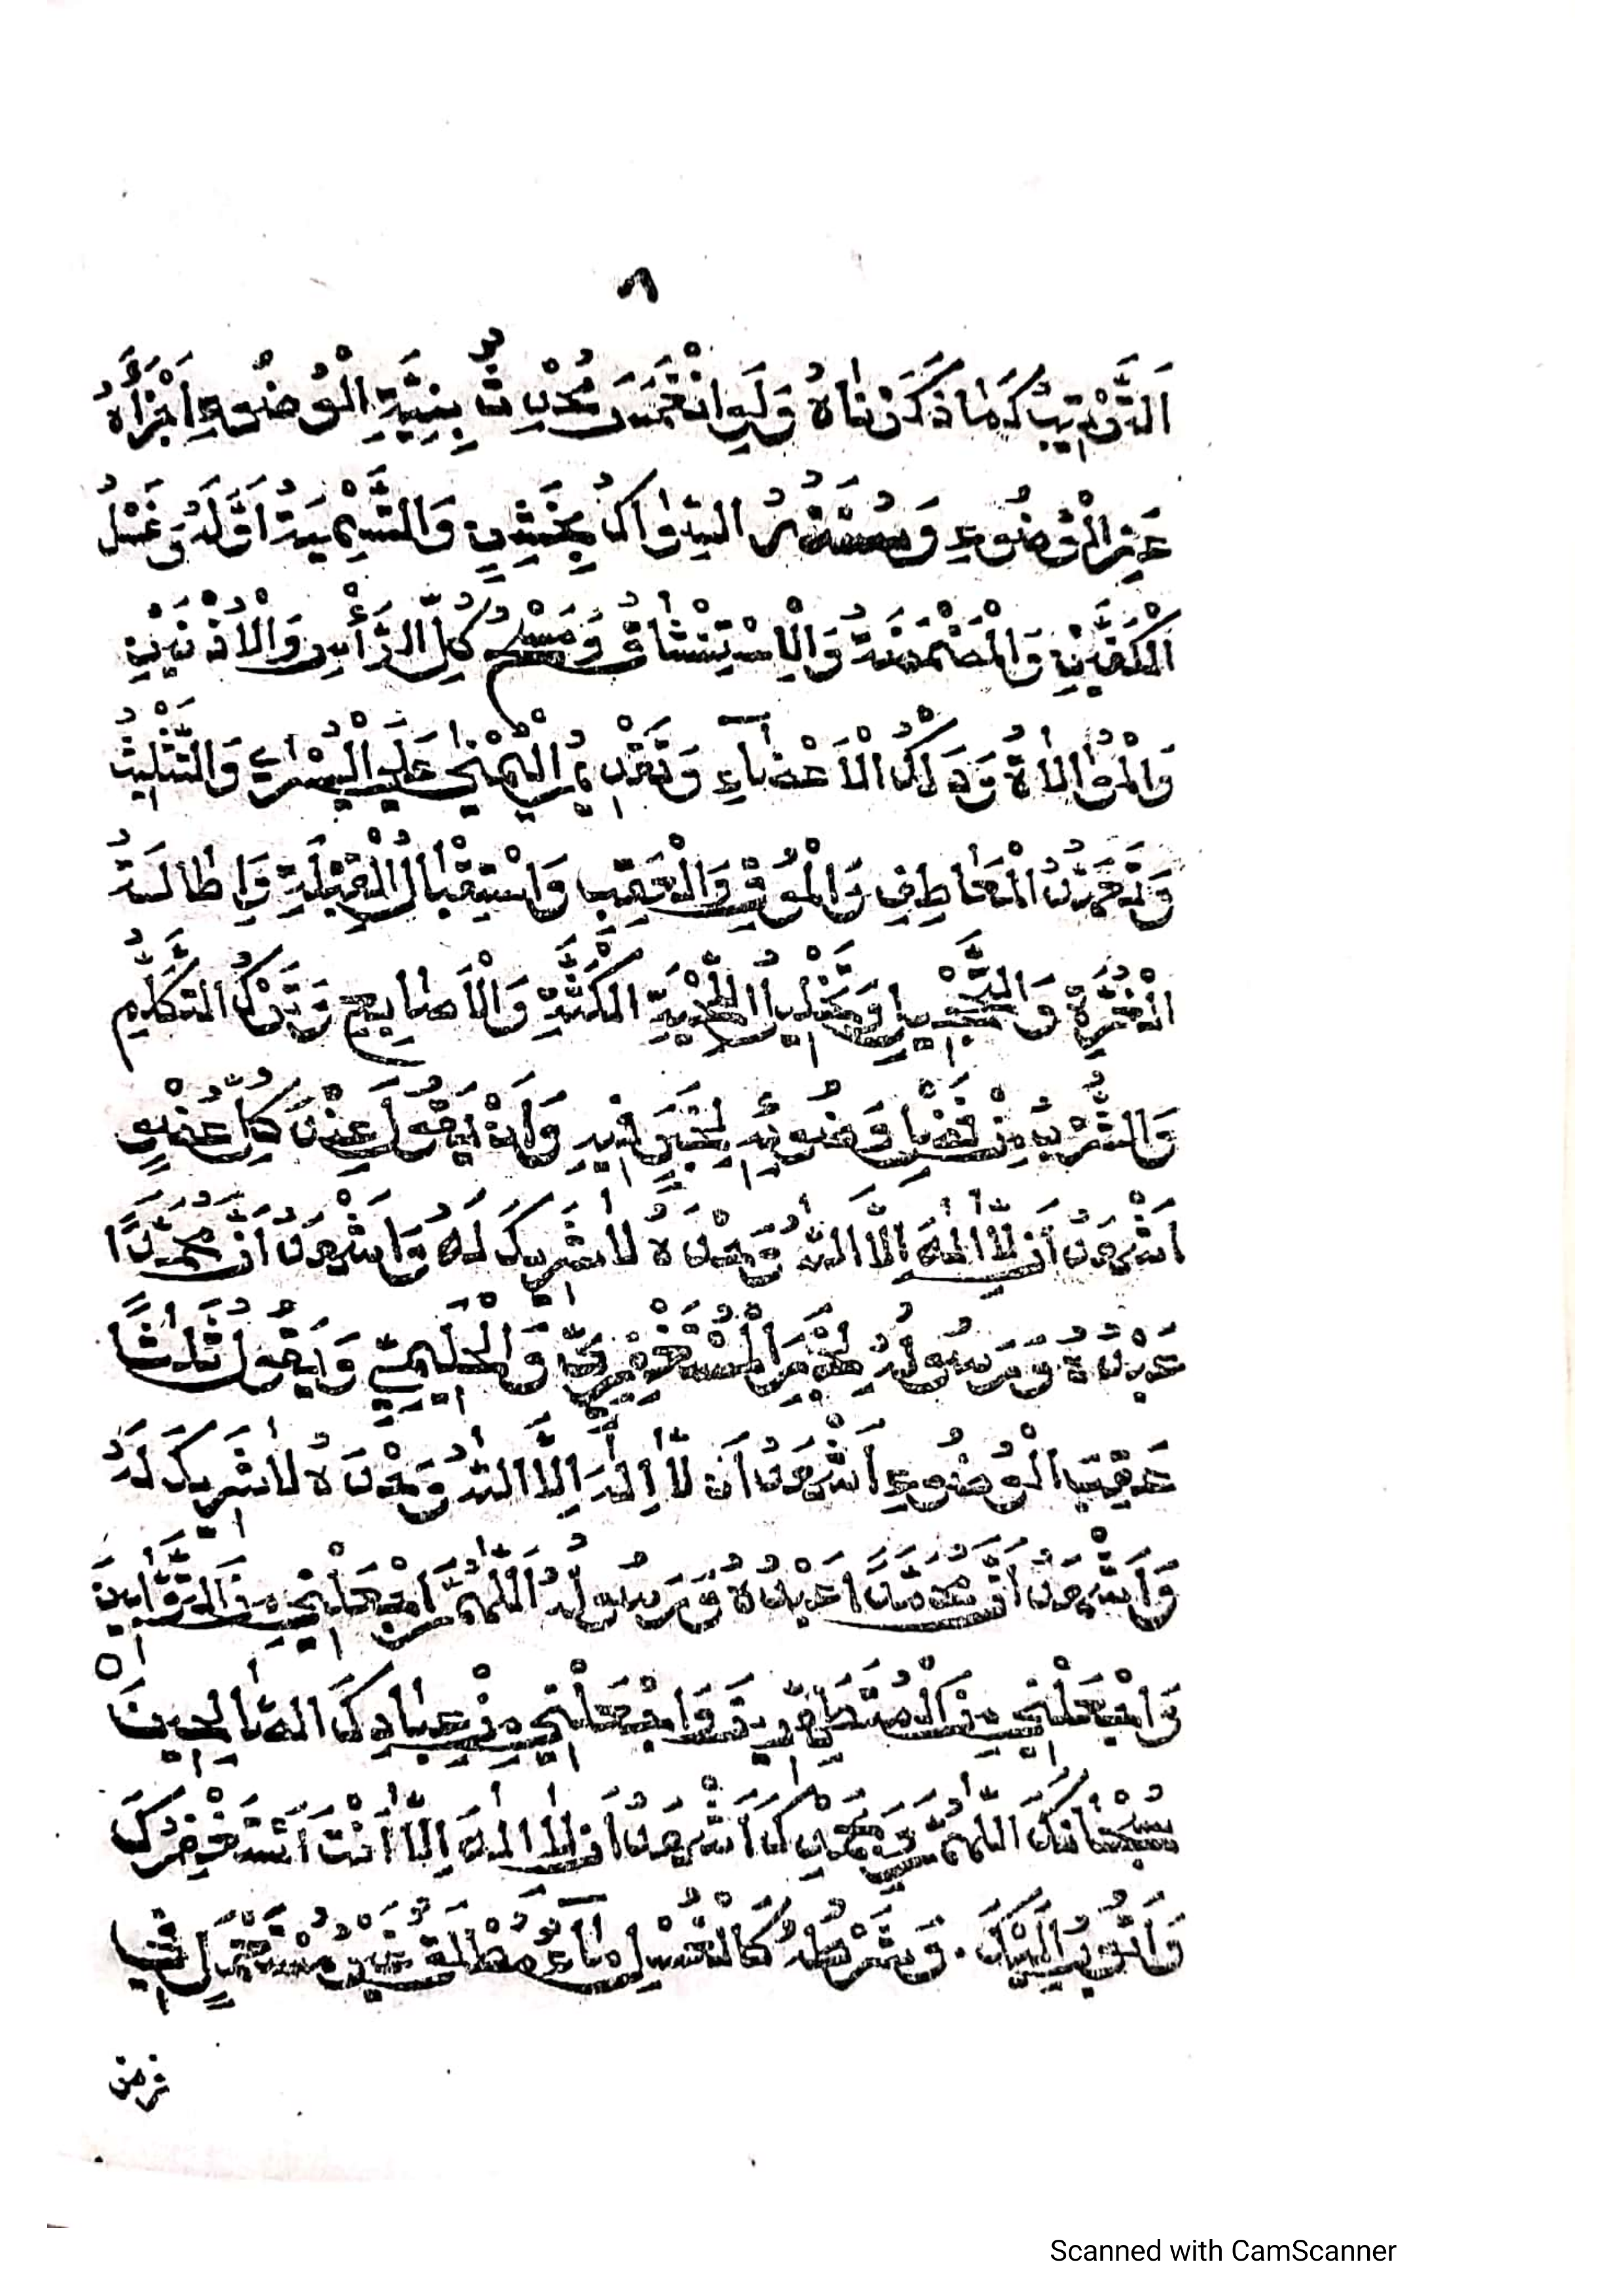 ٨
اَلتَّرْتِيبُ كَمَا ذَكَرْنَاهُ وَلَوِ انْغَمَسَ مُحْدِثٌ بِنِيَّةِ الْوُضُوءِ اَجْزَأَهُ
عَنِ الْوُضُوءِ وَسُنَنُهُ السِّوَاكُ بِخَشِنٍ وَالتَّسْمِيَةُ اَوَّلَهُ وَغَسْلُ
الْكَفَّيْنِ وَالْمَضْمَضَةُ وَالْاِسْتِنْشَاقُ وَمَسْحُ كُلِّ الرَّأْسِ وَالْاُذُنَيْنِ
وَالْمُوَالَاةُ وَدَلْكُ الْاَعْضَآءِ وَتَقْدِيْمُ الْيُمْنٰى عَلَى الْيُسْرٰى وَالتَّثْلِيْثُ
وَتَعَهُّدُ الْمَعَاطِفِ وَالْمُوْقِ وَالْعَقِبِ وَاسْتِقْبَالُ الْقِبْلَةِ وَاِطَالَةُ
الْغُرَّةِ وَالتَّحْجِيلِ وَتَخْلِيلُ اللِّحْيَةِ الْكَثَّةِ وَالْاَصَابِعِ وَتَرْكُ التَّكَلُّمِ
وَالشُّرْبُ مِنْ فَضْلِ وَضُوئِهِ لِخَبَرٍ فِيهِ وَاَنْ يَقُولَ عِنْدَ كُلِّ عُضْوٍ
اَشْهَدُ اَنْ لَّا اِلٰهَ اِلَّا اللّٰهُ وَحْدَهُ لَا شَرِيكَ لَهُ وَاَشْهَدُ اَنَّ مُحَمَّدًا
عَبْدُهُ وَرَسُولُهُ لِخَبَرِ الْمُسْتَغْفِرِيِّ وَالْحَلِيمِيِّ وَيَقُولَ ثَلَاثًا
عَقِيبَ الْوُضُوءِ اَشْهَدُ اَنْ لَّا اِلٰهَ اِلَّا اللّٰهُ وَحْدَهُ لَا شَرِيكَ لَهُ
وَاَشْهَدُ اَنَّ مُحَمَّدًا عَبْدُهُ وَرَسُولُهُ اَللّٰهُمَّ اجْعَلْنِي مِنَ التَّوَّابِينَ
وَاجْعَلْنِي مِنَ الْمُتَطَهِّرِينَ وَاجْعَلْنِي مِنْ عِبَادِكَ الصَّالِحِينَ
سُبْحَانَكَ اللّٰهُمَّ وَبِحَمْدِكَ اَشْهَدُ اَنْ لَا اِلٰهَ اِلَّا اَنْتَ اَسْتَغْفِرُكَ
وَاَتُوبُ اِلَيْكَ. وَشَرْطُهُ كَالْغُسْلِ مَآءٌ مُطْلَقٌ غَيْرُ مُسْتَعْمَلٍ فِي
Scanned with CamScanner